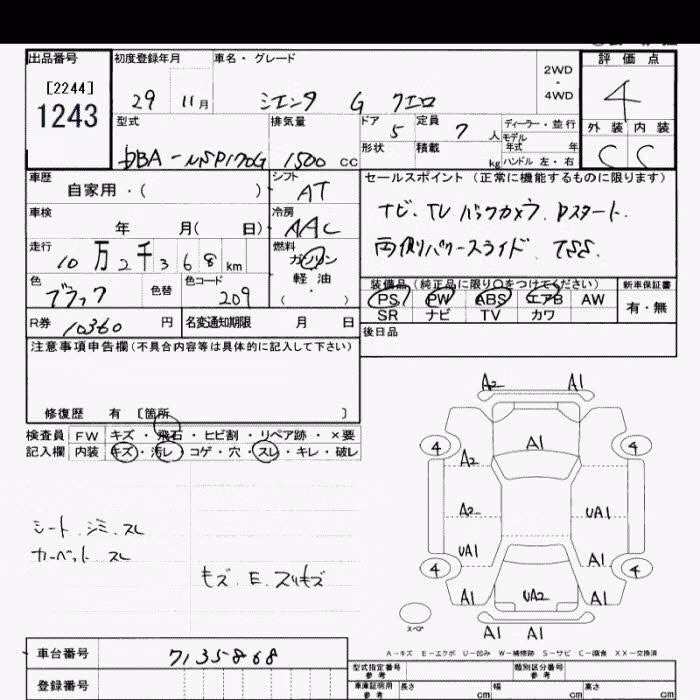 出品番号 初度登録年月 車名・グレード 2WD・4WD 評価点
[2244]
1243
29 11月 シエンタ G クエロ 4
型式 排気量 ドア 5 定員 7 人 ディーラー・並行 外装 内装
モデル年式 年
DBA-NSP170G 1500 cc 形状 積載 kg ハンドル 左・右 C C
車歴 自家用・( ) シフト AT セールスポイント (正常に機能するものに限ります)
車検 年 月( 日) 冷房 AAC ナビ. TV. バックカメラ. Pスタート.
走行 10万2千368km 燃料 ガソリン 両側パワースライド. TSS.
軽油
( ・ )
色 ブラック 色替 色コード 209 装備品 (純正品に限り○をつけてください) 新車保証書
PS PW ABS エアB AW 有・無
SR ナビ TV カワ
R券 10360 円 名変通知期限 月 日 後日品
注意事項申告欄 (不具合内容等は具体的に記入して下さい)
修復歴 有 [箇所 ]
検査員 FW キズ・飛石・ヒビ割・リペア跡・×要
記入欄 内装 キズ・汚レ・コゲ・穴・スレ・キレ・破レ
シート. シミ. スレ
カーペット スレ
キズ. E. スリキズ
A2 A1
A1
4 4
A2
A2 UA1
UA1 A1
4 4
A1 UA2 A1
スペア
A1 A1
A-キズ E-エクボ U-凹み W-補修跡 S-サビ C-腐食 XX-交換済
車台番号 7135868
登録番号
型式指定番号 参考 類別区分番号 参考
車庫証明用 参考 長さ cm 幅 cm 高さ cm